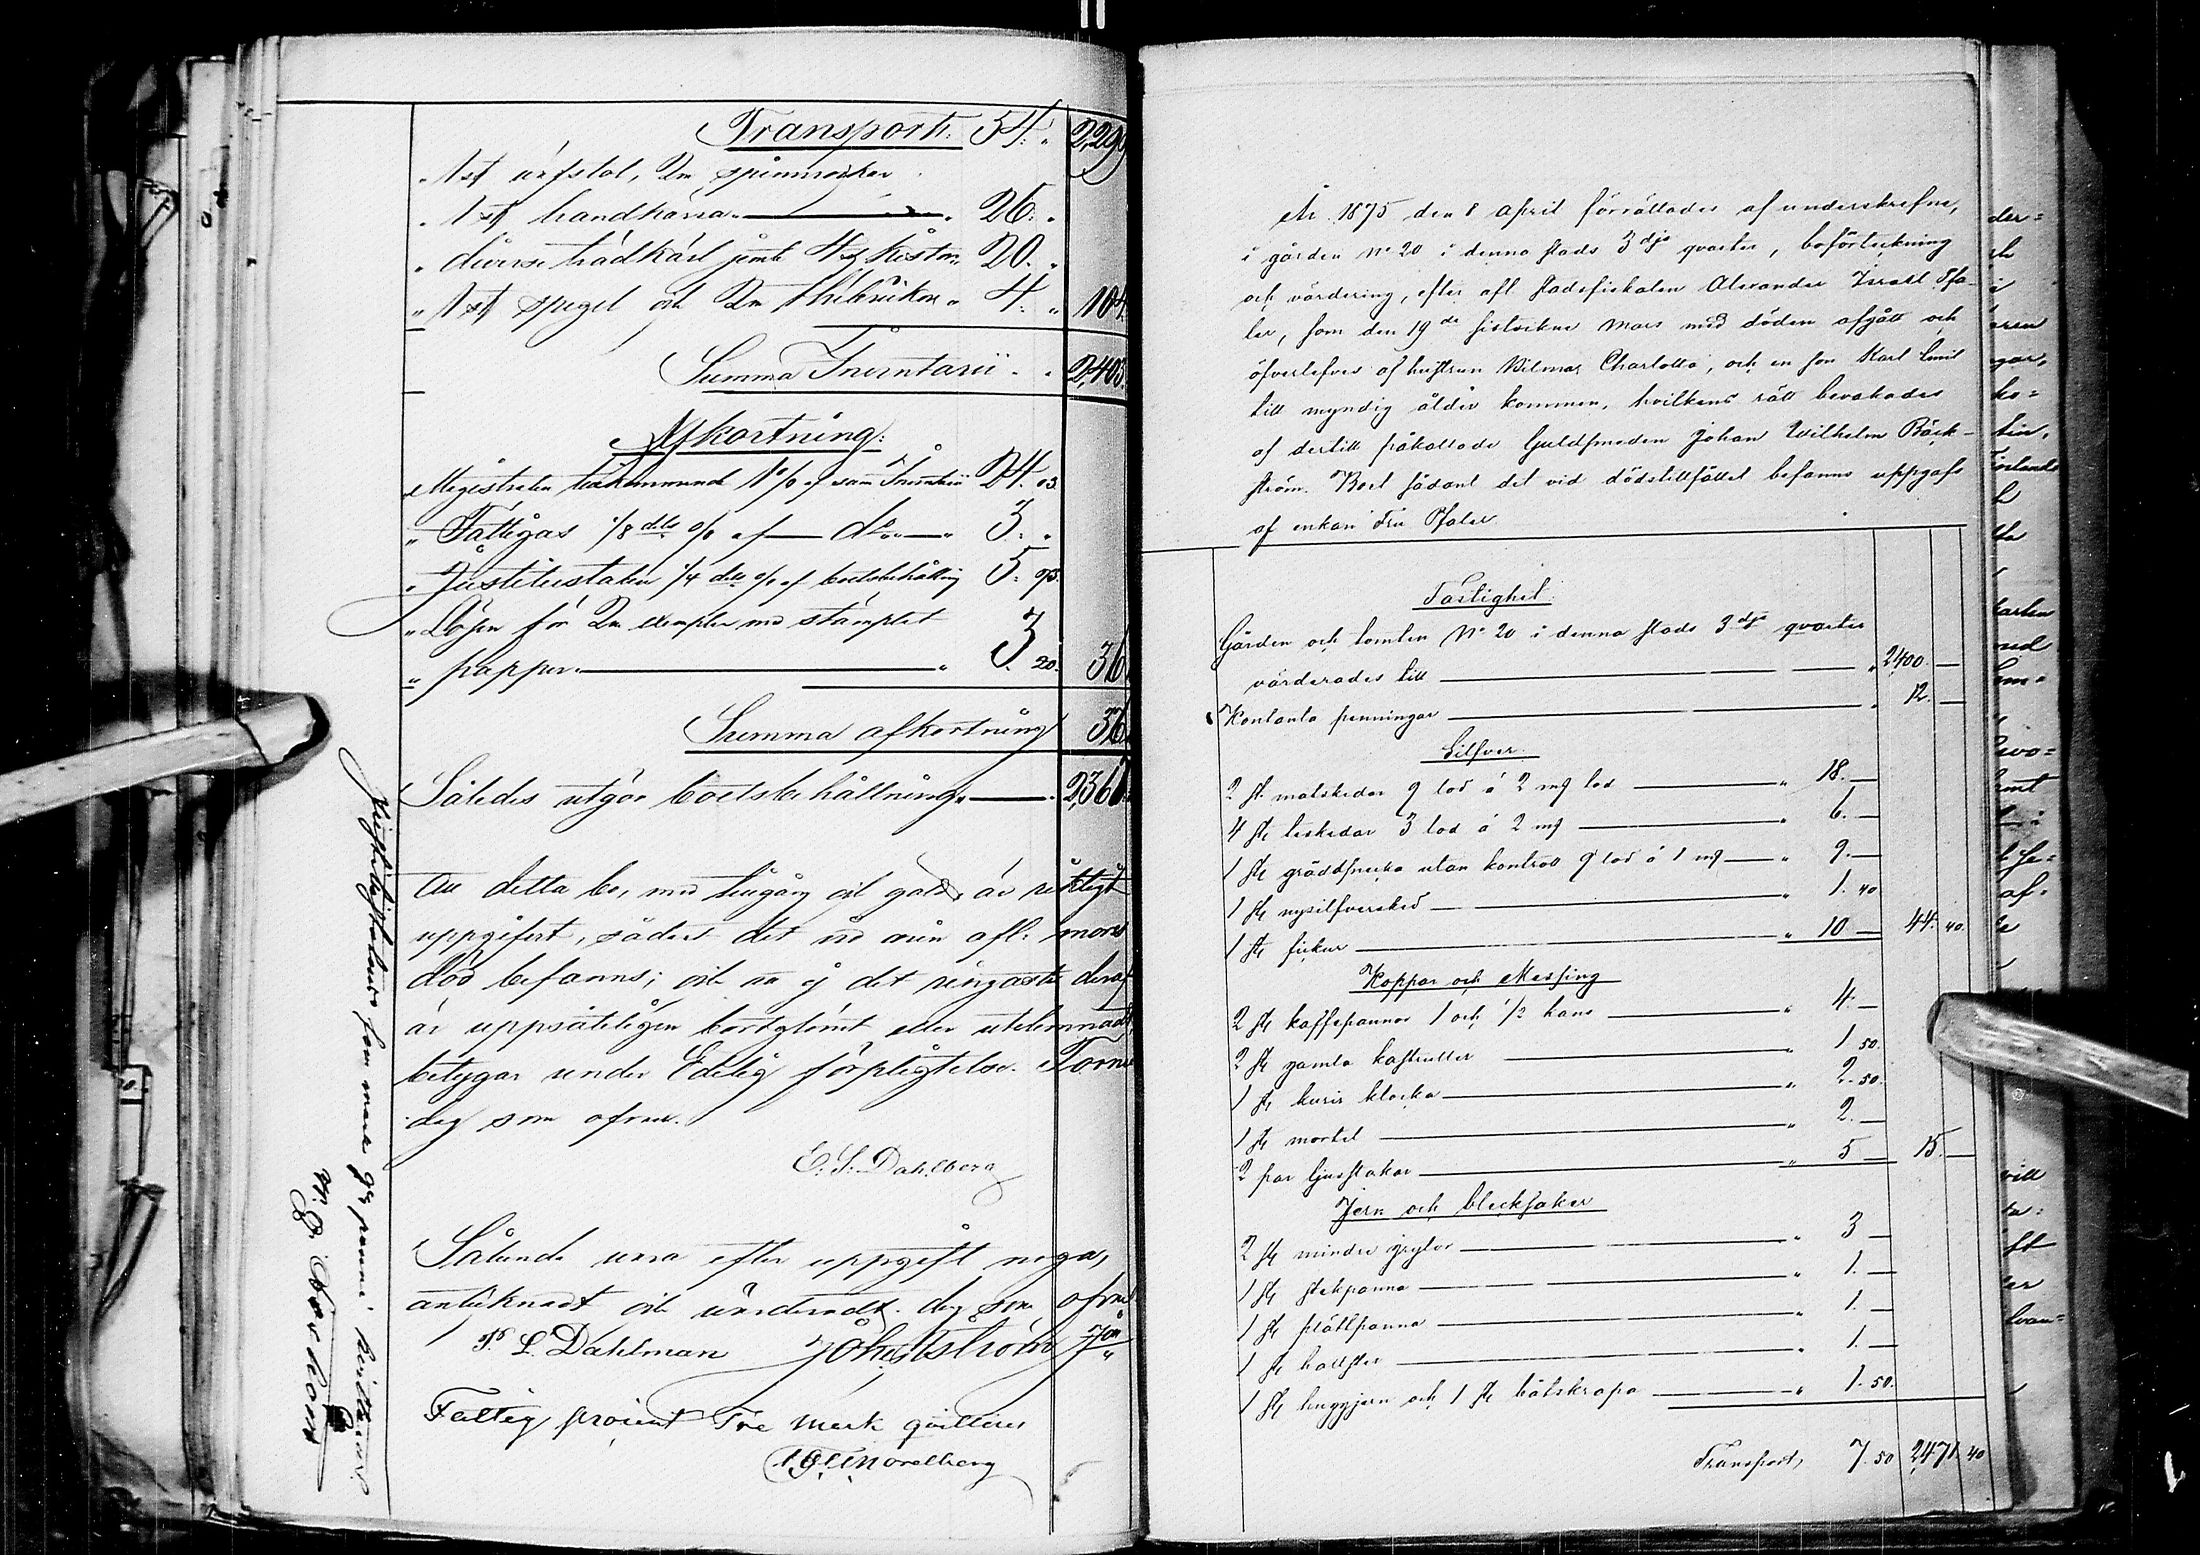 Transport. 54. " 2,299
" 1 st väfstol, 2ne spinnrockar
" 1 st handkärra " 26. "
" diverse trädkärl jemte 4 st kistor " 20. "
" 1 st spegel och 2ne " 4. " 104.
Summa Inventarii " 2,403.
Afkortning:
Magistraten tillkommande 1 % af sam Inventarii 24. 03.
" Fattigas 1/8 dels % af do " 3. "
" Justitiestaten 1/4 dels % af boetsbehållning 5. 95.
" Lösen för 2ne exemplar med stämplat
" papper " 3. 20. 36
Summa afkortning 36
Således utgör boetsbehållning " 2,366
Att detta bo, med tillgång och gäld, är riktigt
uppgifvet, sådant det vid min afl. mors
död befanns; och att ej det ringaste deraf
är uppsåteligen bortglömt eller utelemnadt,
betygar under Edelig förpligtelse. Torneå
dag som ofvan.
E. S. Dahlberg
Sålunda vara efter uppgift noga,
antecknadt och värderadt. dag som ofvan
P. L. Dahlman
Fattig procent Tre mark qvitteras
som mark 95 penni qvitteras.
År 1875 den 8 April förrättades af underskrefne,
i gården No 20 i denna stads 3dje qvarter, boförteckning
och värdering, efter afl. stadsfiskalen Alexander Israel Pfa-
ler, som den 19de sistvikne Mars med döden afgått och
öfverlefves af hustrun Vilma Charlotta, och en son Karl Emil
till myndig ålder kommen, hvilkens rätt bevakades
af dertill påkallade Guldsmeden Johan Wilhelm Bäck-
ström. Boet sådant det vid dödstillfället befanns uppgafs
af enkan Fru Pfaler.
Fastighet.
Gården och tomten No 20 i denna stads 3dje qvarter
värderades till " 2,400. —
Kontanta penningar " 12. —
Silfver.
2 st. matskedar 9 lod á 2 mg lod " 18. —
4 st teskedar 3 lod á 2 mg " 6. —
1 st gräddsnecka utan kontroll 9 lod á 1 mg " 9. —
1 st nysilfversked " 1. 40
1 st fickur " 10 — 44. 40.
Koppar och Messing
2 st kaffepannor 1 och 1/2 kans " 4. —
2 st gamla kastruller " 1 50.
1 st klocka " 2. 50.
1 st mortel " 2. —
2 par ljusstakar " 5 — 15. —
Jern och blecksaker
2 st mindre grytor " 3 —
1 st stekpanna " 1. —
1 st plättpanna " 1. —
1 st halster " 1. —
1 st huggjern och 1 st båtskrapa " 1. 50.
Transport, 7. 50 2,471 40